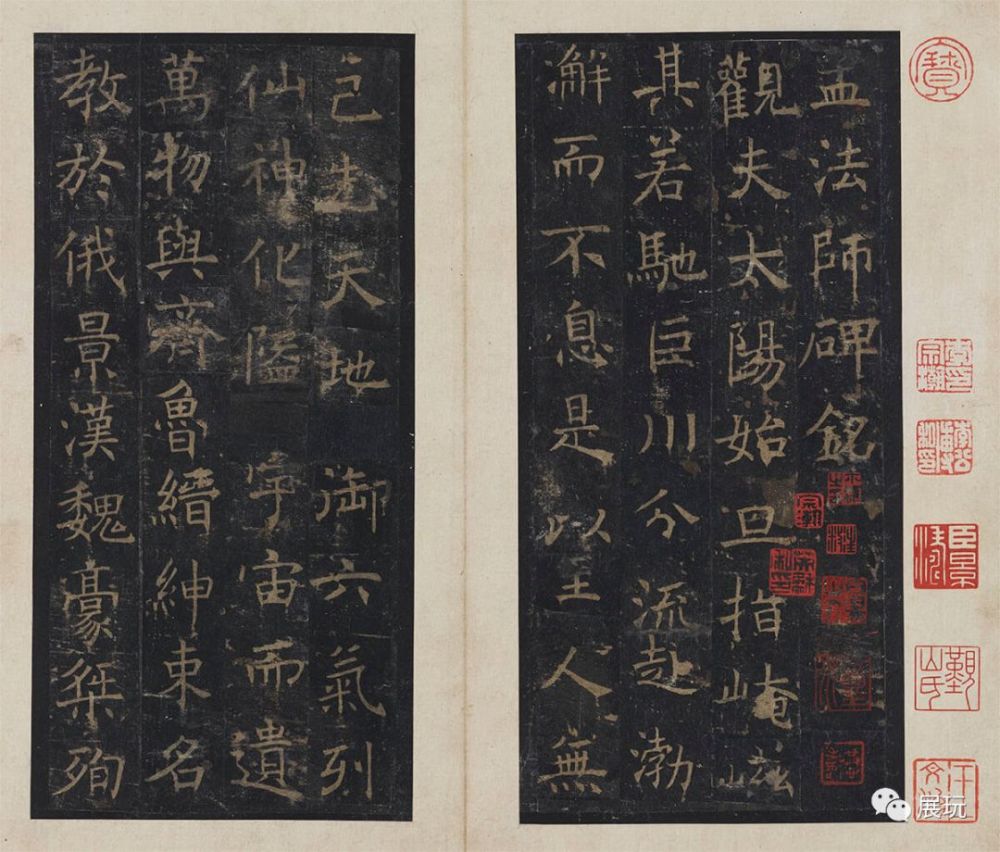 孟法師碑銘
觀夫太陽始旦指崦嵫
其若馳巨川分流赴渤
澥而不息是以至人無
己先天地御六氣列
仙神化隘宇宙而遺
萬物與齊魯縉紳束名
教於俄景漢魏豪桀殉
展玩